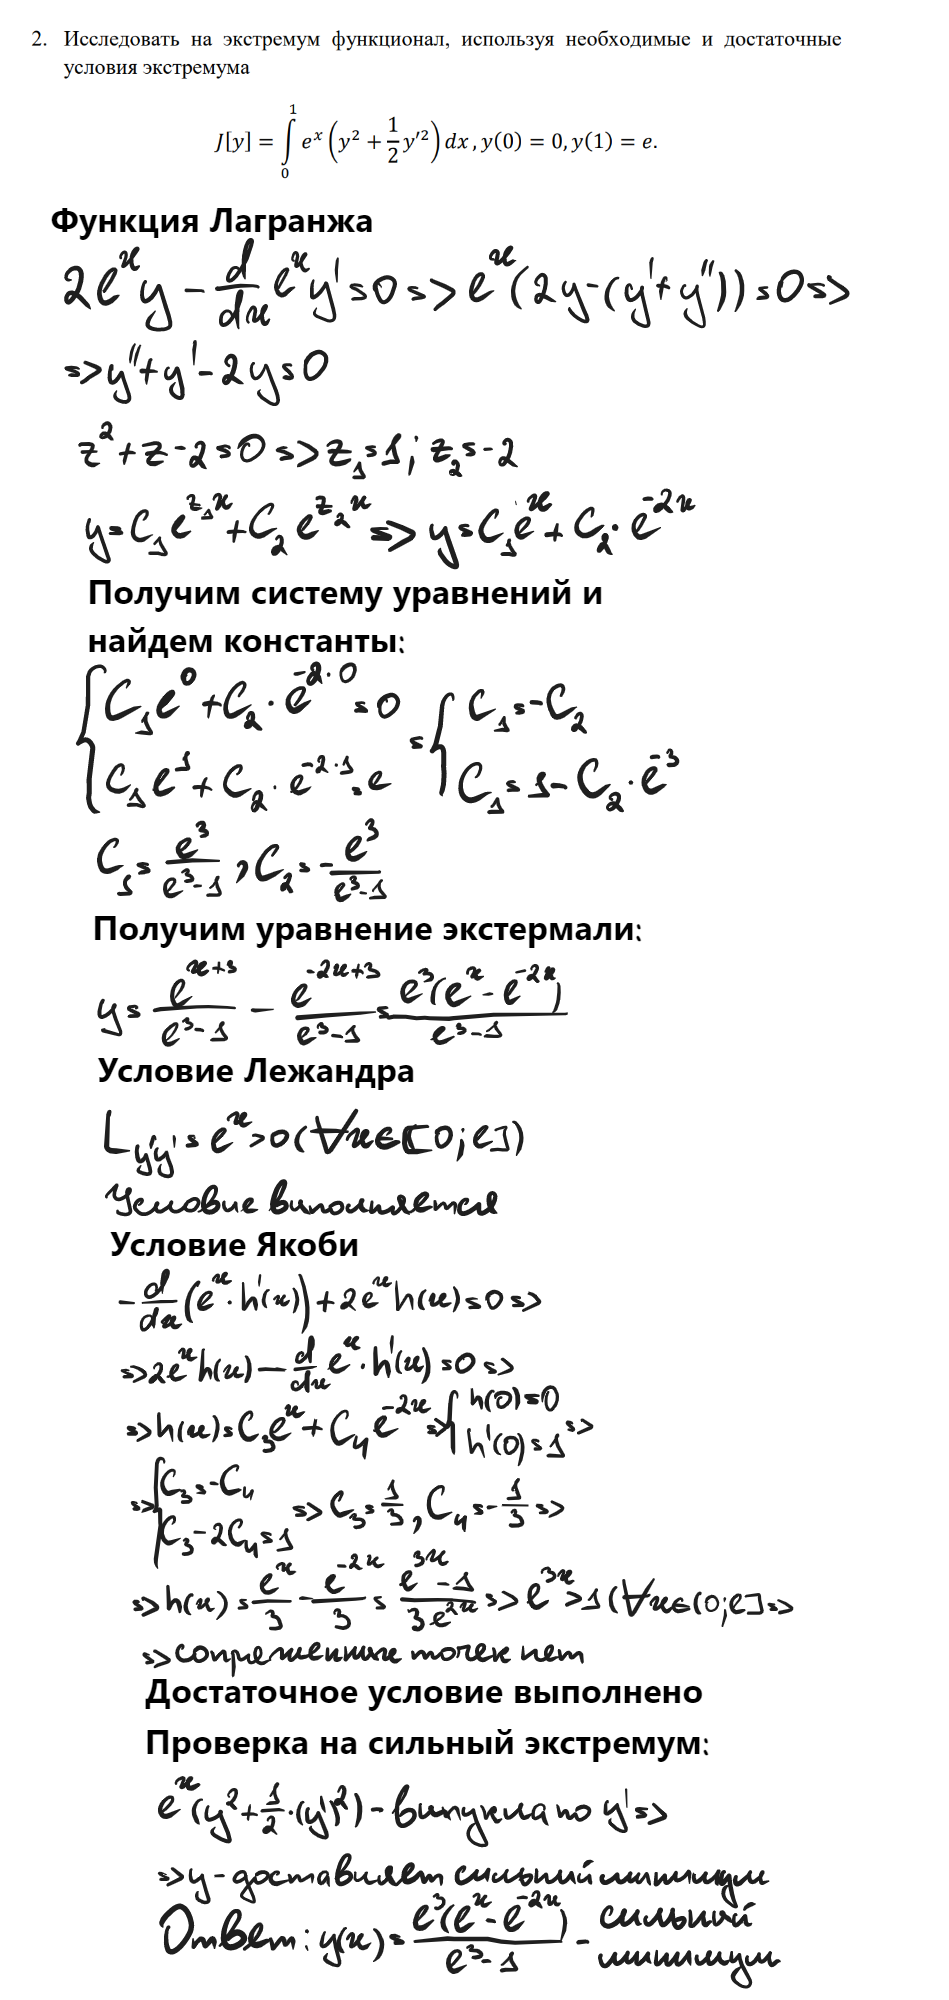 2. Исследовать на экстремум функционал, используя необходимые и достаточные
условия экстремума
J[y] = ∫₀¹ eˣ (y² + 1/2 y'²) dx, y(0) = 0, y(1) = e.
Функция Лагранжа
2eˣy - d/dx eˣy' = 0 => eˣ(2y-(y'+y'')) = 0 =>
=> y''+y'-2y = 0
z²+z-2 = 0 => z₁ = 1; z₂ = -2
y = C₁e^(z₁x) + C₂e^(z₂x) => y = C₁eˣ + C₂·e^(-2x)
Получим систему уравнений и
найдем константы:
{C₁e⁰ + C₂·e^(-2·0) = 0 = {C₁ = -C₂
{C₁e¹ + C₂·e^(-2·1) = e {C₁ = 1-C₂·e⁻³
C₁ = e³/(e³-1), C₂ = -e³/(e³-1)
Получим уравнение экстермали:
y = e^(x+3)/(e³-1) - e^(-2x+3)/(e³-1) = e³(eˣ-e^(-2x))/(e³-1)
Условие Лежандра
L_y'y' = eˣ > 0 (∀x∈[0;e])
Условие виполняется
Условие Якоби
-d/dx(eˣ·h'(x)) + 2eˣh(x) = 0 =>
=> 2eˣh(x) - d/dx eˣ·h'(x) = 0 =>
=> h(x) = C₃eˣ + C₄e^(-2x) => {h(0) = 0 {h'(0) = 1 =>
=> {C₃ = -C₄ {C₃-2C₄ = 1 => C₃ = 1/3, C₄ = -1/3 =>
=> h(x) = eˣ/3 - e^(-2x)/3 = (e^(3x)-1)/(3e^(2x)) => e^(3x) > 1 (∀x∈(0;e] =>
=> сопряженних точек нет
Достаточное условие выполнено
Проверка на сильный экстремум:
eˣ(y²+1/2·(y')²) - випукла по y' =>
=> y - доставляет сильний минимум
Ответ: y(x) = e³(eˣ-e^(-2x))/(e³-1) - сильний
минимум